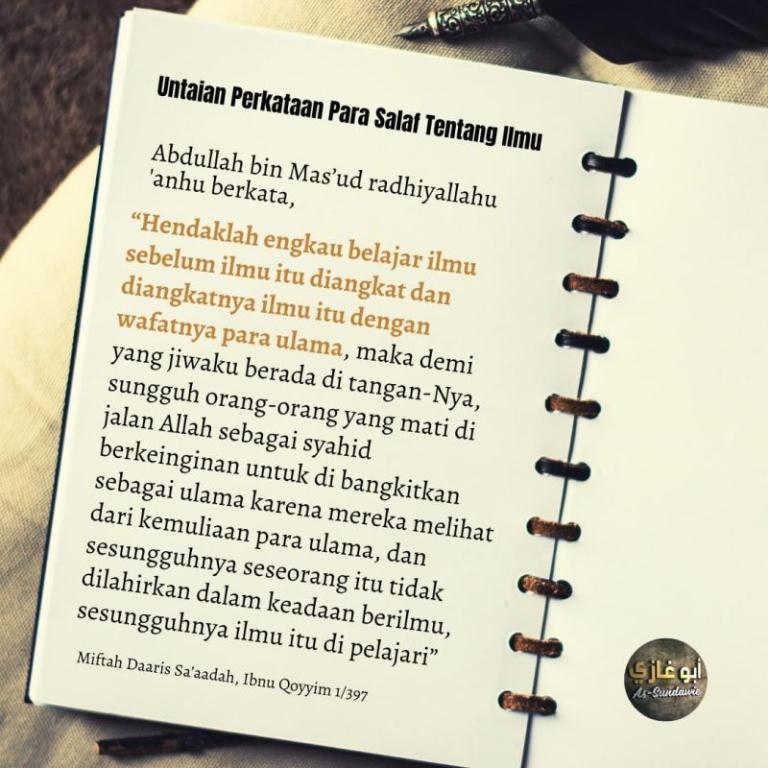 Untaian Perkataan Para Salaf Tentang Ilmu
Abdullah bin Mas’ud radhiyallahu
'anhu berkata,
“Hendaklah engkau belajar ilmu
sebelum ilmu itu diangkat dan
diangkatnya ilmu itu dengan
wafatnya para ulama, maka demi
yang jiwaku berada di tangan-Nya,
sungguh orang-orang yang mati di
jalan Allah sebagai syahid
berkeinginan untuk di bangkitkan
sebagai ulama karena mereka melihat
dari kemuliaan para ulama, dan
sesungguhnya seseorang itu tidak
dilahirkan dalam keadaan berilmu,
sesungguhnya ilmu itu di pelajari”
Miftah Daaris Sa'aadah, Ibnu Qoyyim 1/397
أبو غازي
As-Sundawie